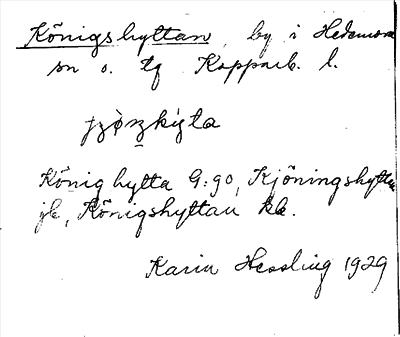 Königshyttan, by i Hedemora
sn o. tg Kopparb. l.
Könighytta G:90, Kjöningshyttan
jb, Königshyttan kb.
Karin Hessling 1929